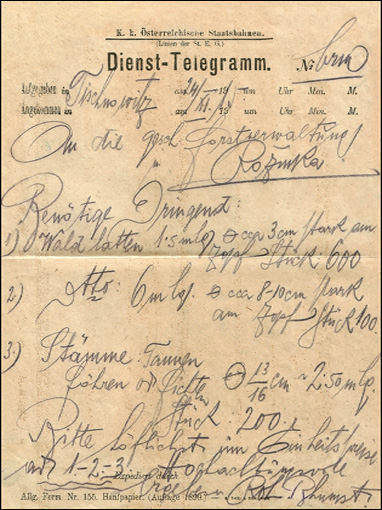 K. k. Österreichische Staatsbahnen.
(Linien der St. E. G.)
Dienst-Telegramm. No
Aufgegeben in Tischnowitz am 24/ 19 um Uhr Min. M.
Angekommen in am XI. 19 um Uhr Min. M.
An die Forstverwaltung
Rožinka
Benötige Dringend:
1) Waldlatten 1·5 m lg. ⌀ cca 3 cm stark am
Zopf Stück: 600
2) dtto: 6 m lg. ⌀ cca 8-10 cm stark
am Zopf Stück 100.
3) Stämme: Tannen
Föhren od Fichten ⌀ 13/16 cm 2·50 m lg.
Stück: 200.
Bitte höflichst um Einheitspreise
1-2-3. Hochachtungsvoll
Expediert durch
Allg. Form. Nr. 155. Hanfpapier. (Auflage 1899.)